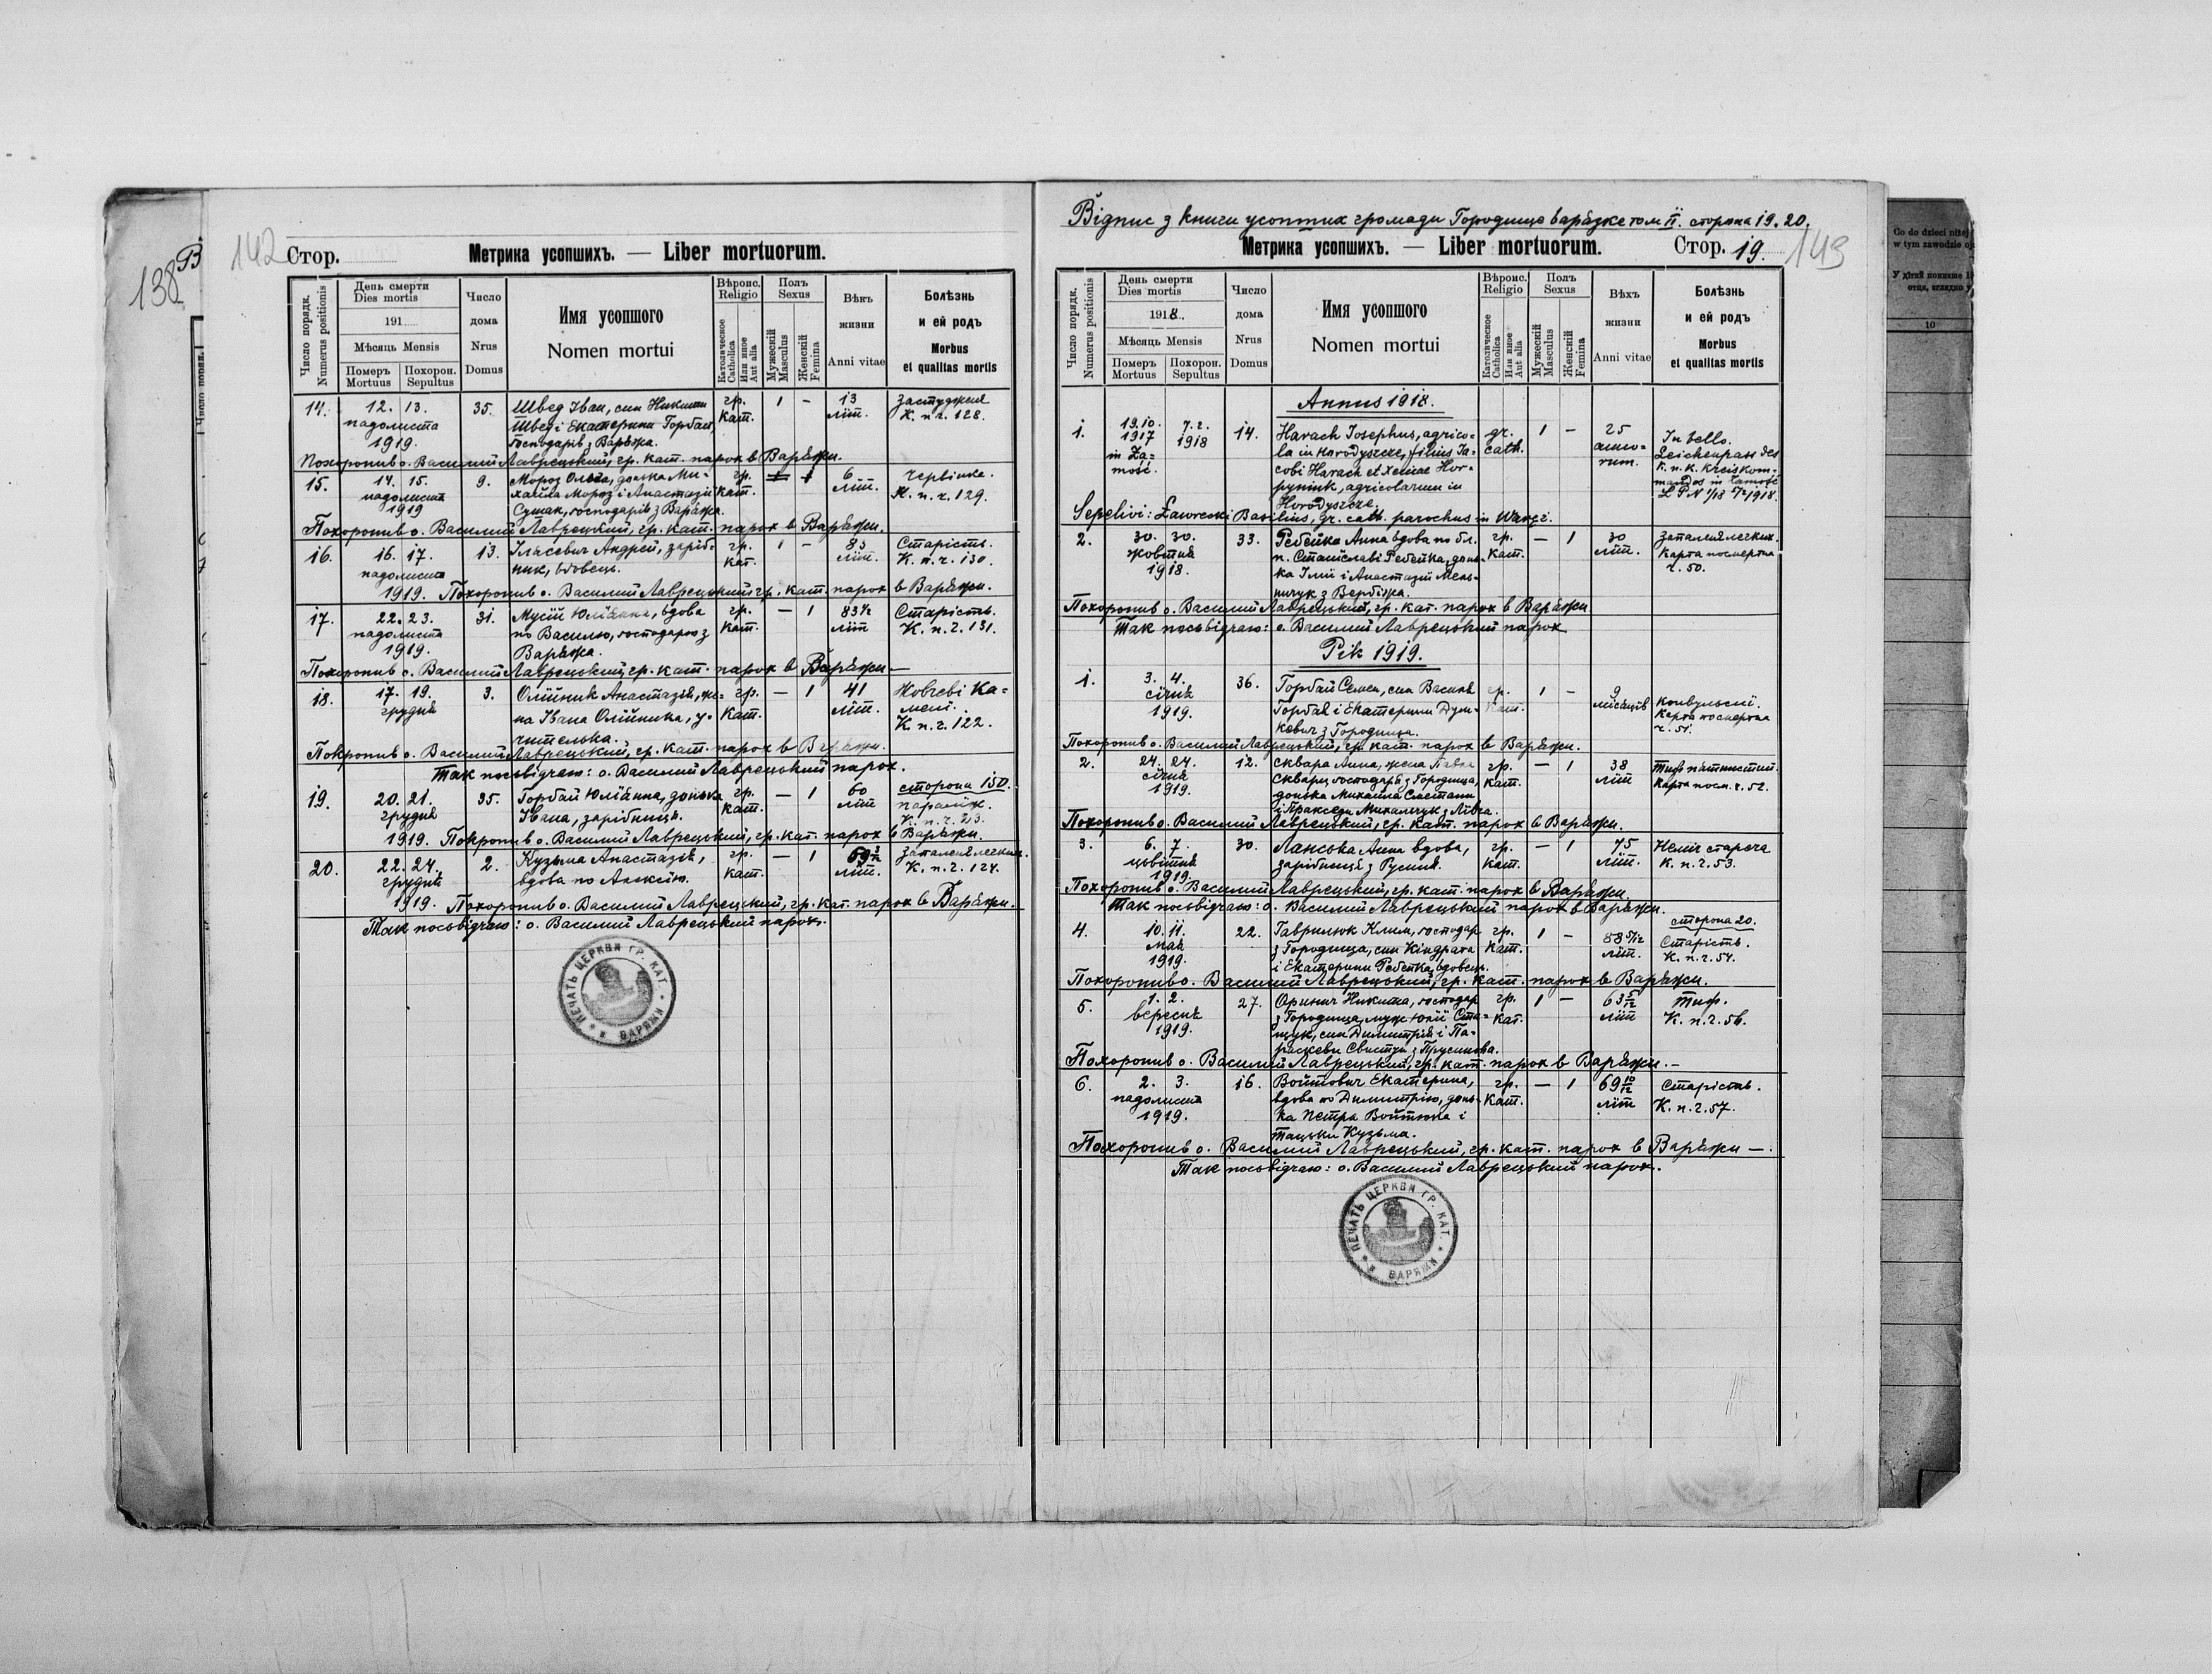 138
В
142
Стор.
Метрика усопшихъ. — Liber mortuorum.
Число порядк.
Numerus positionis
День смерти
Dies mortis
191
Мѣсяць Mensis
Померъ
Mortuus
Похорон.
Sepultus
Число
дома
Nrus
Domus
Имя усопшого
Nomen mortui
Вѣроис.
Religio
Католическое
Catholica
Или иное
Aut alia
Полъ
Sexus
Мужескій
Masculus
Женскій
Femina
Вѣкъ
жизни
Anni vitae
Болѣзнь
и ей родъ
Morbus
et qualitas mortis
14. 12. 13. 35. Швед Іван, син Никити гр. 1 – 13 застуджінє
падолиста Швед і Екатерини Горбай, кат. літ. К. п. ч. 128.
1919. господарів з Варяжа.
Похоронив о. Василий Лаврецький, гр. кат. парох в Варяжи.
15. 14. 15. 9. Мороз Ольга, донька Ми- гр. 1 6 червінка.
падолиста хайла Мороз і Анастазії кат. літ. К. п. ч. 129.
1919 Сушак, господарів з Варяжа.
Похоронив о. Василий Лаврецкий, гр. кат. парох в Варяжи.
16. 16. 17. 13. Ільсевич Андрей, заріб- гр. 1 – 85 Старість.
падолиста ник, вдовець. кат. літ. К. п. ч. 130.
1919. Похоронив о. Василий Лаврецький гр. кат. парох в Варяжи.
17. 22. 23. 31. Мусій Юліянна, вдова гр. – 1 83½ Старість.
падолиста по Василю, господарю з кат. літ К. п. ч. 131.
1919. Варяжа.
Похоронив о. Василий Лаврецький, гр. кат. парох в Варяжи —
18. 17. 19. 3. Олійник Анастазія, жі- гр. – 1 41 Жовчеві ка-
грудня на Івана Олійника, у- кат. літ. мені.
чителька. К. п. ч. 122.
Похоронив о. Василий Лаврецький, гр. кат. парох в Варяжи.
Так посьвідчаю: о. Василий Лаврецький парох.
19. 20. 21. 35. Горбай Юліянна, донька гр. – 1 60 сторона 150.
грудня Івана, зарібниця. кат. літ параліж.
К. п. ч. 123.
1919. Похоронив о. Василий Лаврецький, гр. кат. парох в Варяжи.
20. 22. 24. 2. Кузьма Анастазія, гр. – 1 69 запаленя легких.
грудня вдова по Алексію. кат. літ. К. п. ч. 124.
1919. Похоронив о. Василий Лаврецький, гр. кат. парох в Варяжи.
Так посьвідчаю: о. Василий Лаврецький парох.
ПЕЧАТЬ ЦЕРКВИ ГР. КАТ.
ВАРЯЖИ
Відпис з книги усопших громади Городище варяжске том II. сторона 19. 20.
Метрика усопшихъ. — Liber mortuorum.
Стор. 19.
143
Число порядк.
Numerus positionis
День смерти
Dies mortis
1918.
Мѣсяць Mensis
Померъ
Mortuus
Похорон.
Sepultus
Число
дома
Nrus
Domus
Имя усопшого
Nomen mortui
Вѣроис.
Religio
Католическое
Catholica
Или иное
Aut alia
Полъ
Sexus
Мужескій
Masculus
Женскій
Femina
Вѣхъ
жизни
Anni vitae
Болѣзнь
и ей родъ
Morbus
et qualitas mortis
Annus 1918.
1. 19.10. 7.2. 14. Harach Josephus, agrico- gr. 1 – 25 In bello.
1917 1918 la in Horodyszcze, filius Ja- cath. anno- Leichenpass des
in Za- cobi Harach et Xeniae Hor- rum. k. u. k. Kreiskom-
mość. pynink, agricolarum in mandos in Zamość
Horodyszcze. 1918.
Sepelivi: Ławrecki Basilius, gr. cath. parochus in Waręż.
2. 30. 30. 33. Ребейка Анна вдова по бл. гр. – 1 30 запаленя легких.
жовтня п. Станіславі Ребейка, донь- кат. літ. Карта посмертна
1918. ка Ілії і Анастазії Мель- ч. 50.
ничук з Вербіжа.
Похоронив о. Василий Лаврецький, гр. кат. парох в Варяжи
Так посьвідчаю: о. Василий Лаврецький парох
Рік 1919.
1. 3. 4. 36. Горбай Семен, син Василя гр. 1 – 9 Конвульсії.
січня Горбая і Екатерини Дум- кат. місяців Карта посмертна
1919. кевич з Городища. ч. 51.
Похоронив о. Василий Лаврецький, гр. кат. парох в Варяжи.
2. 24. 24. 12. Сквара Анна, жена Павла гр. – 1 38 Тиф пятнистий.
січня Сквари господаря з Городища, кат. літ Карта посм. ч. 52.
1919. донька Михайла Сметани
і Пракседи Михальчук з Лівча.
Похоронив о. Василий Лаврецький, гр. кат. парох в Варяжи.
3. 6. 7. 30. Ланська Анна вдова, гр. – 1 75 Неміч стареча
цьвітня зарібниця з Русина. кат. літ. К. п. ч. 53.
1919.
Похоронив о. Василий Лаврецький, гр. кат. парох в Варяжи.
Так посьвідчаю: о. Василий Лаврецький парох в Варяжи.
сторона 20.
4. 10. 11. 22. Гаврилюк Клим, господар гр. 1 – 88 5/12 Старість.
мая з Городища, син Кіндрата кат. літ. К. п. ч. 54.
1919. і Екатерини Ребейка, вдовець.
Похоронив о. Василий Лаврецький, гр. кат. парох в Варяжи.
5. 1. 2. 27. Оринич Никита, господар гр. 1 – 63 5/12 Тиф.
вересня з Городища, муж Юлії Ста- кат. літ К. п. ч. 56.
1919. щук, син Димитрія і Па-
раскеви Свистун з Прусинова.
Похоронив о. Василий Лаврецький, гр. кат. парох в Варяжи. —
6. 2. 3. 16. Войтович Екатерина, гр. – 1 69 10/12 Старість.
падолиста вдова по Димитрію, донь- кат. літ К. п. ч. 57.
1919. ка Петра Войтюка і
Тацьки Кузьма.
Похоронив о. Василий Лаврецький, гр. кат. парох в Варяжи —.
Так посьвідчаю: о. Василий Лаврецький парох.
ПЕЧАТЬ ЦЕРКВИ ГР. КАТ.
ВАРЯЖИ
Co do dzieci niżej
w tym zawodzie
10